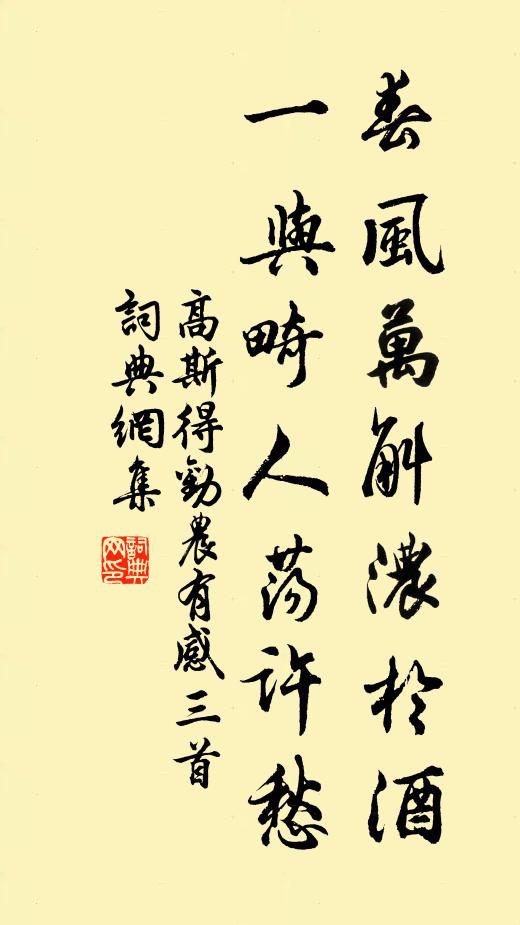 春風萬斛濃於酒
一與畸人蕩許愁
高斯得勸農有感三首
詞典網集
詞典網印